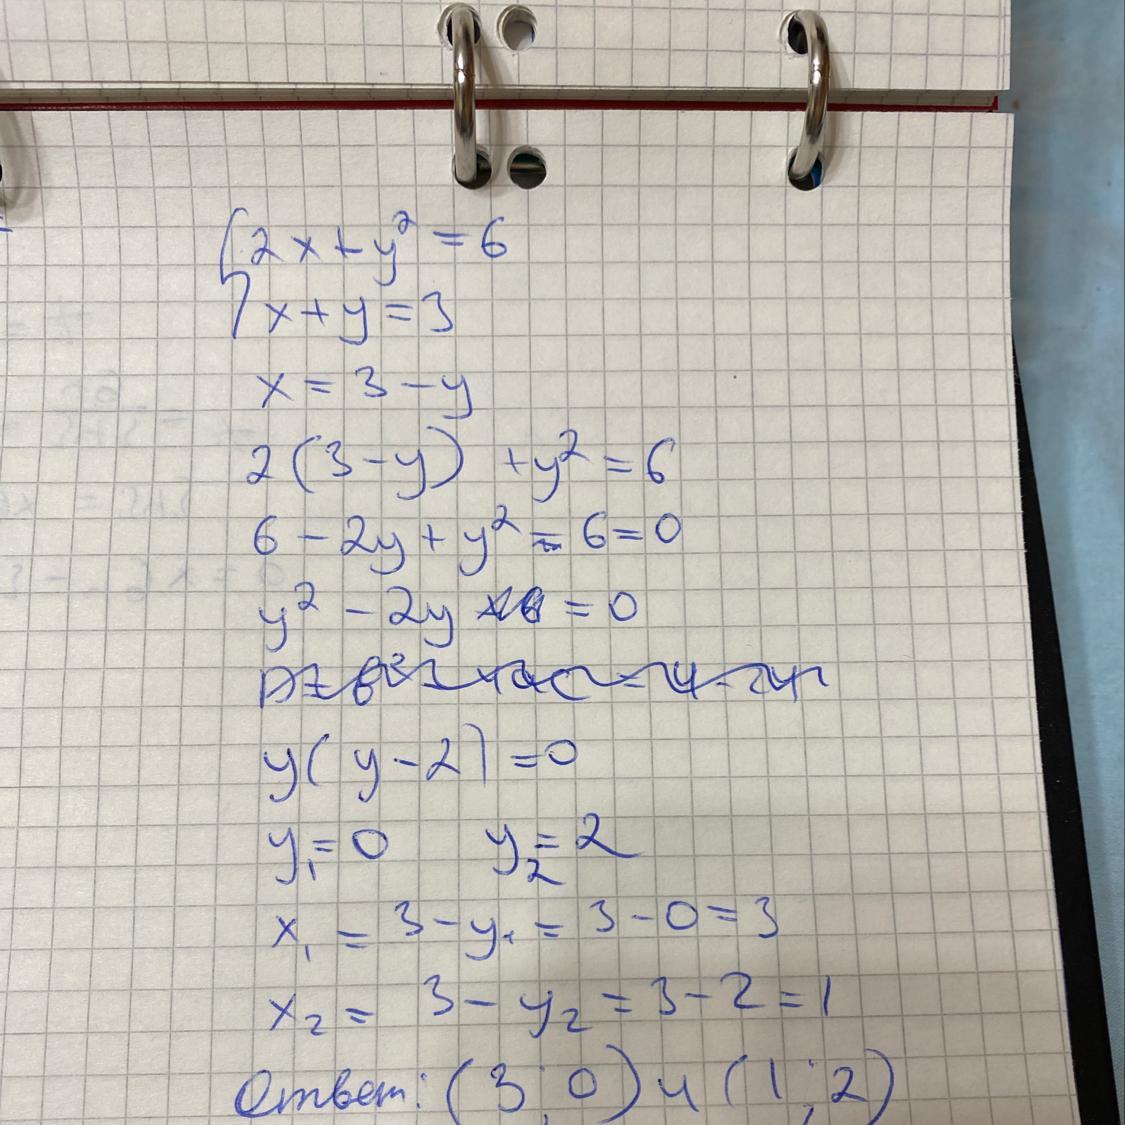 2x+y²=6
x+y=3
x=3-y
2(3-y) +y²=6
6-2y+y²-6=0
y²-2y =0
y(y-2)=0
y₁=0 y₂=2
x₁=3-y₁=3-0=3
x₂=3-y₂=3-2=1
Ответ: (3;0) и (1;2)